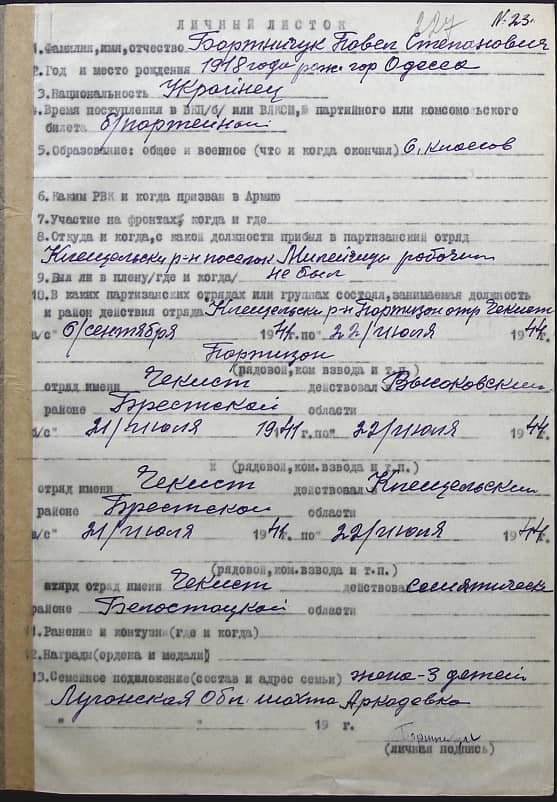 227 N-23.
ЛИЧНЫЙ ЛИСТОК
1.Фамилия,имя,отчество Бортничук Павел Степанович
2.Год и место рождения 1918 года рож. гор Одесса
3.Национальность Украінец
4.Время поступления в ВКП/б/ или ВЛКСМ,№ партийного или комсомольского
билета б/партейной
5.Образование: общее и военное (что и когда окончил) 6, классов
6.Каким РВК и когда призван в Армию
7.Участие на фронтах, когда и где
8.Откуда и когда,с какой должности прибыл в партизанский отряд
Клещельски р-н поселок Милейчицы робочим
9.Был ли в плену/где и когда/ не был
10.В каких партизанских отрядах или группах состоял,занимаемая должность
и район действия отряда Клещельски р-н Портизон отр Чекист
/с" 6/сентября 1941г. по" 22/июля 1944г.
Портизон
(рядовой,ком взвода и т.п.)
отряд имени Чекист действовал Высоковским
районе Брестской области
/с" 21/июля 1941г. по" 22/июля 1944г.
х (рядовой,ком.взвода и т.п.)
отряд имени Чекист действовал Клещельским
районе Брестской области
/с" 21/июля 1941г. по" 22/июля 1944г.
(рядовой,ком.взвода и т.п.)
атярд отряд имени Чекист действова
районе Белостоцкой области
11.Ранение и контузия(где и когда)
12.Награды(ордена и медали)
13.Семейное положение(состав и адрес семьи) жена-3 детей
Луганская Обл. шахта Аркадевка
" " 19 г.
(личная подпись)